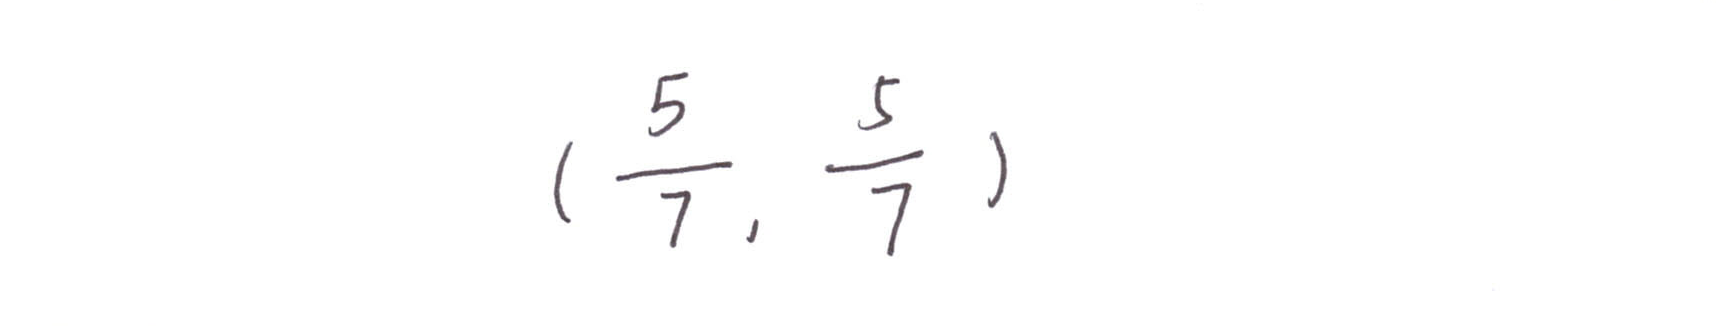 ( 5/7 , 5/7 )